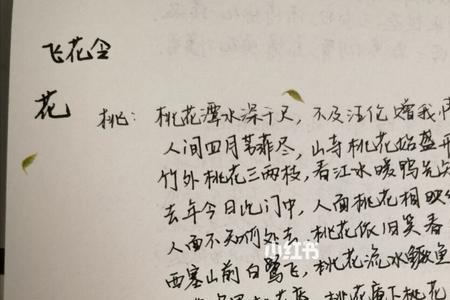 飞花令
花
桃：桃花潭水深千尺，不及汪伦赠我情
人间四月芳菲尽，山寺桃花始盛开
竹外桃花三两枝，春江水暖鸭先知
去年今日此门中，人面桃花相映
人面不知何处去，桃花依旧笑春
小红书
西塞山前白鹭飞，桃花流水鳜鱼
桃花庵下桃花